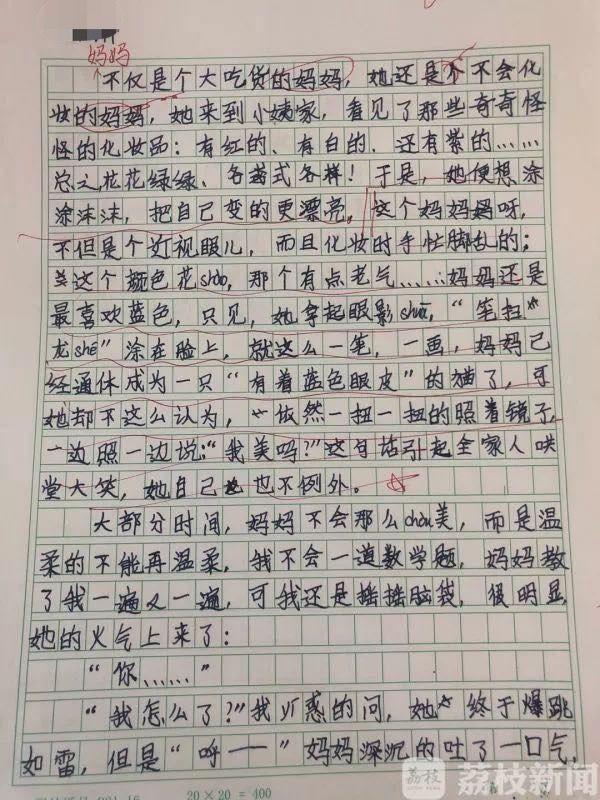 妈妈
不仅是个大吃货的妈妈，她还是个不会化
妆的妈妈，她来到小姨家，看见了那些奇奇怪
怪的化妆品：有红的、有白的、还有紫的……
总之花花绿绿、各式各样！于是，她便想涂
涂沫沫，把自己变的更漂亮。这个妈妈呀，
不但是个近视眼儿，而且化妆时手忙脚乱的；
这个颜色花shào，那个有点老气……妈妈还是
最喜欢蓝色，只见，她拿起眼影shuā，“笔扫
龙shé”涂在脸上，就这么一笔，一画，妈妈已
经通体成为一只“有着蓝色眼皮”的猫了，可
她却不这么认为，依然一扭一扭的照着镜子，
一边照一边说：“我美吗？”这句话引起全家人哄
堂大笑，她自己也不例外。
大部分时间，妈妈不会那么chòu美，而是温
柔的不能再温柔，我不会一道数学题，妈妈教
了我一遍又一遍，可我还是摇摇脑袋，很明显，
她的火气上来了：
“你……”
“我怎么了？”我疑惑的问，她终于爆跳
如雷，但是“呼——”妈妈深沉的吐了一口气，
20×20=400
荔枝 荔枝新闻